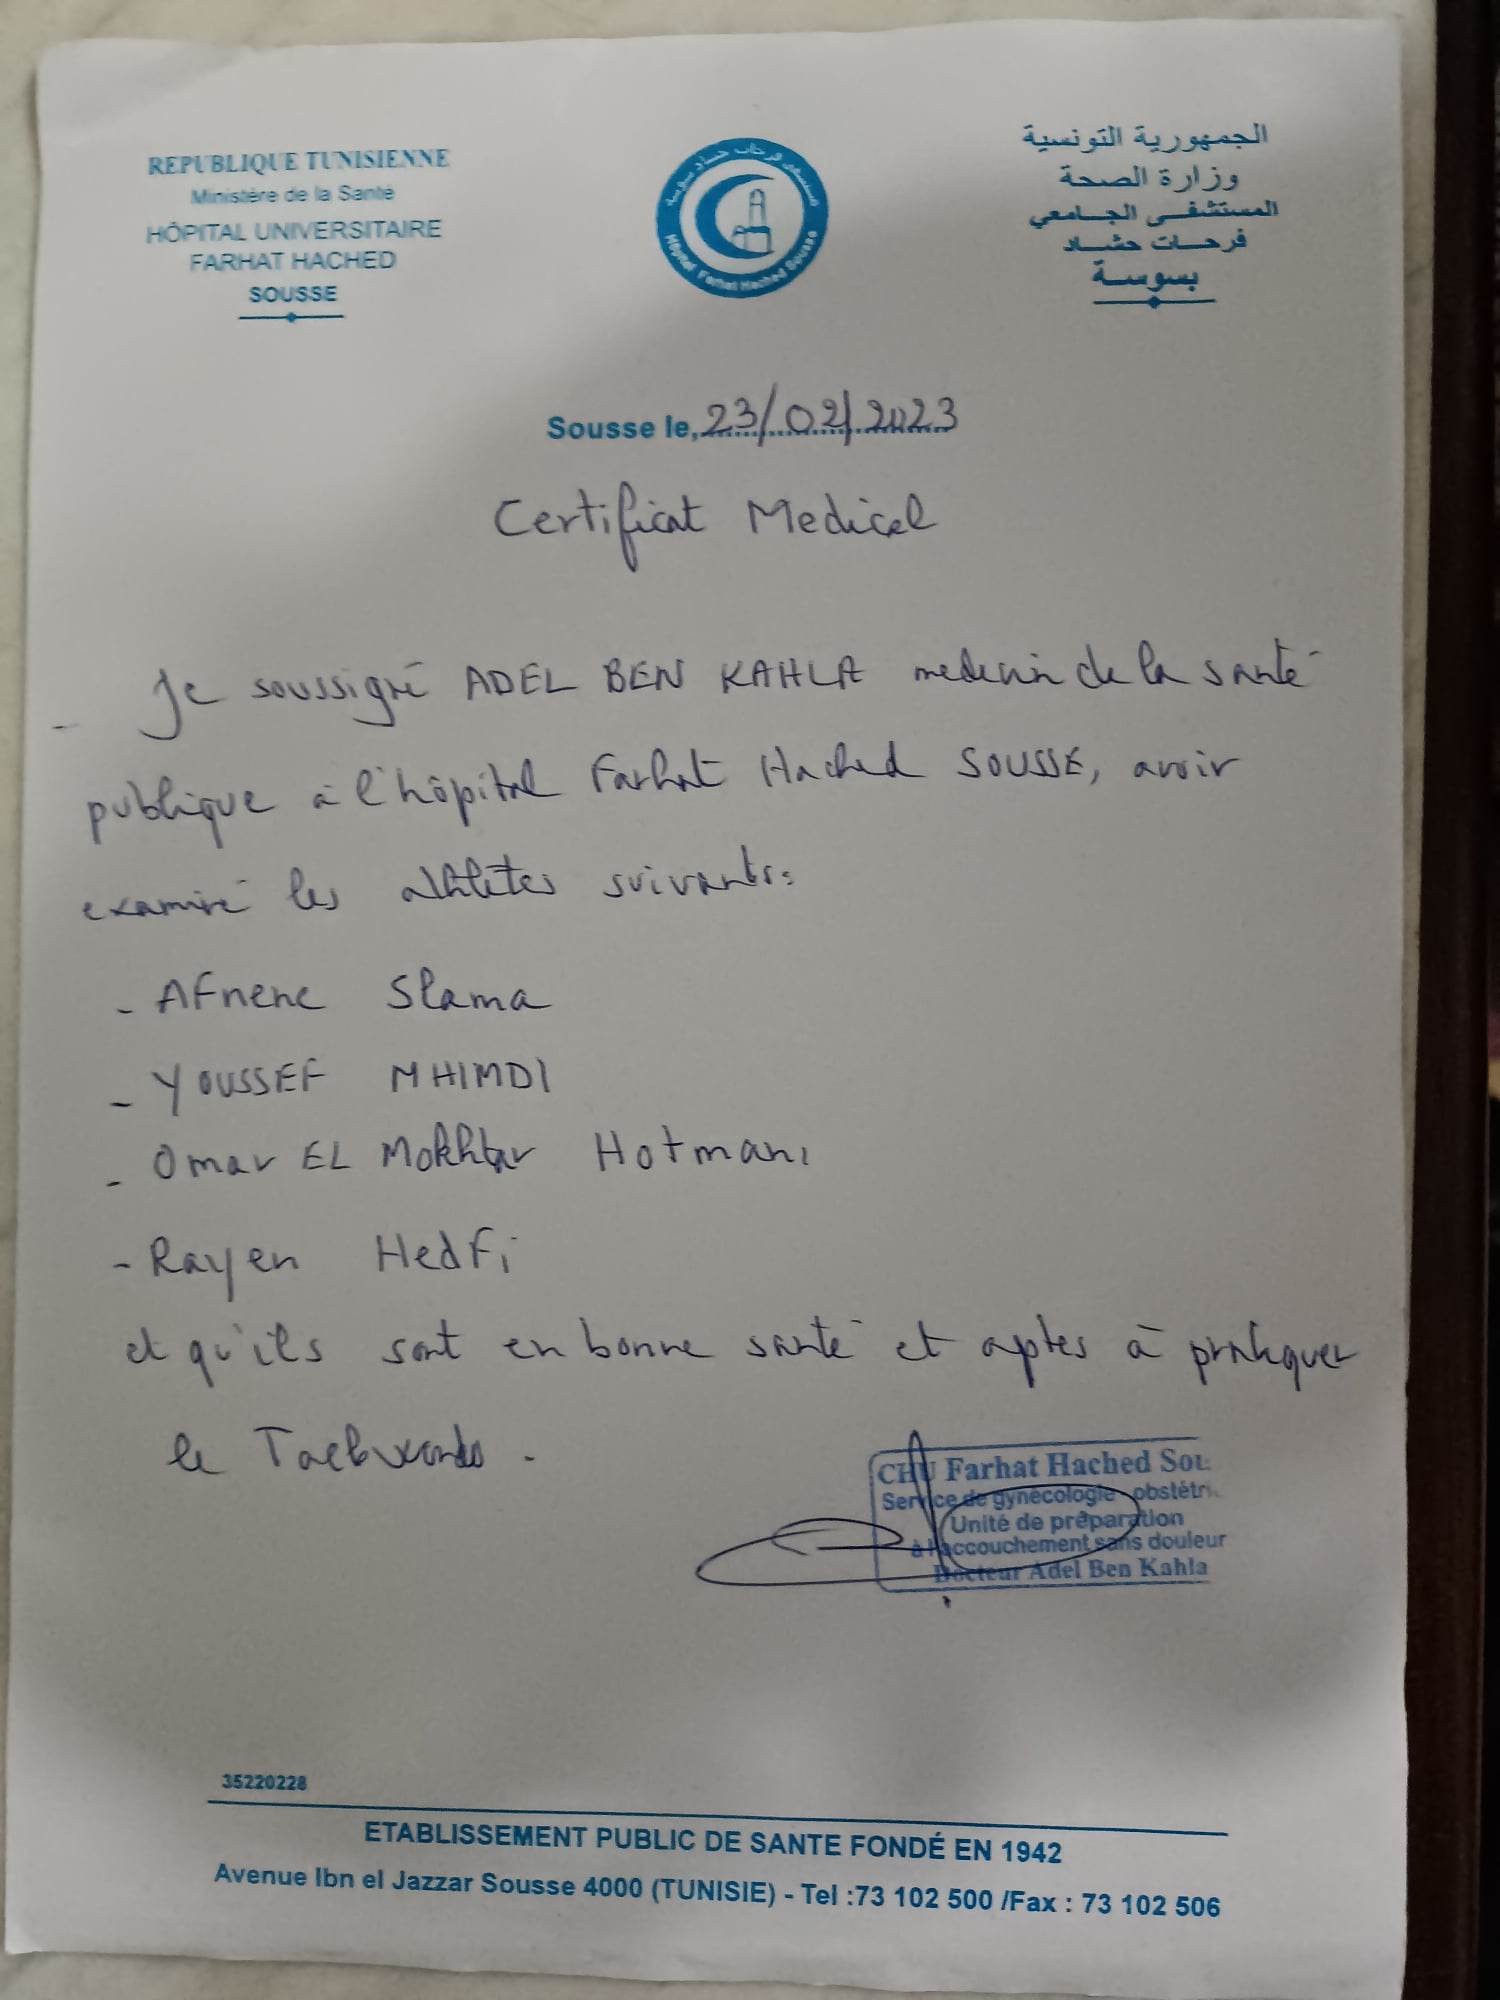 REPUBLIQUE TUNISIENNE
Ministère de la Santé
HÔPITAL UNIVERSITAIRE
FARHAT HACHED
SOUSSE
مستشفى فرحات حشاد سوسة
Hôpital Farhat Hached Sousse
الجمهورية التونسية
وزارة الصحة
المستشفى الجامعي
فرحات حشاد
بسوسة
Sousse le, 23/02/2023
Certificat Medical
- Je soussigné ADEL BEN KAHLA medecin de la santé
publique à l'hôpital Farhat Hached SOUSSE, avoir
examiné les athlètes suivants:
- AFnene Slama
- YOUSSEF MHIMDI
- Omar EL Mokhtar Hotmani
- Rayen HedFi
et qu'ils sont en bonne santé et aptes à pratiquer
le Taekwondo.
CHU Farhat Hached Sou
Service de gynécologie obstétri
Unité de préparation
à l'accouchement sans douleur
Docteur Adel Ben Kahla
35220228
ETABLISSEMENT PUBLIC DE SANTE FONDÉ EN 1942
Avenue Ibn el Jazzar Sousse 4000 (TUNISIE) - Tel :73 102 500 /Fax : 73 102 506